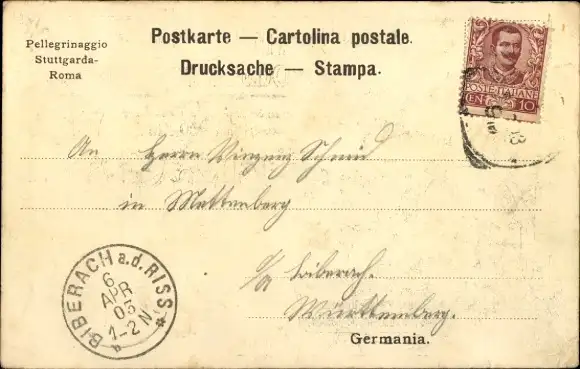 Pellegrinaggio
Stuttgarda-
Roma
Postkarte — Cartolina postale.
Drucksache — Stampa.
POSTE ITALIANE
CEN 10
An Herrn Vinzenz Schmid
in Mettenberg
Biberach.
Württemberg.
Germania.
BIBERACH a.d. RISS
6
APR
03
1-2 N.